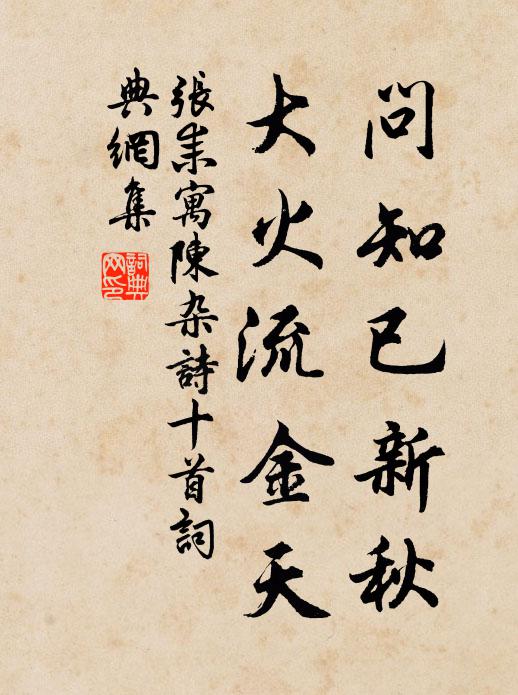 問知已新秋
大火流金天
張耒寓陳杂詩十首詞
典網集
詞典
网印